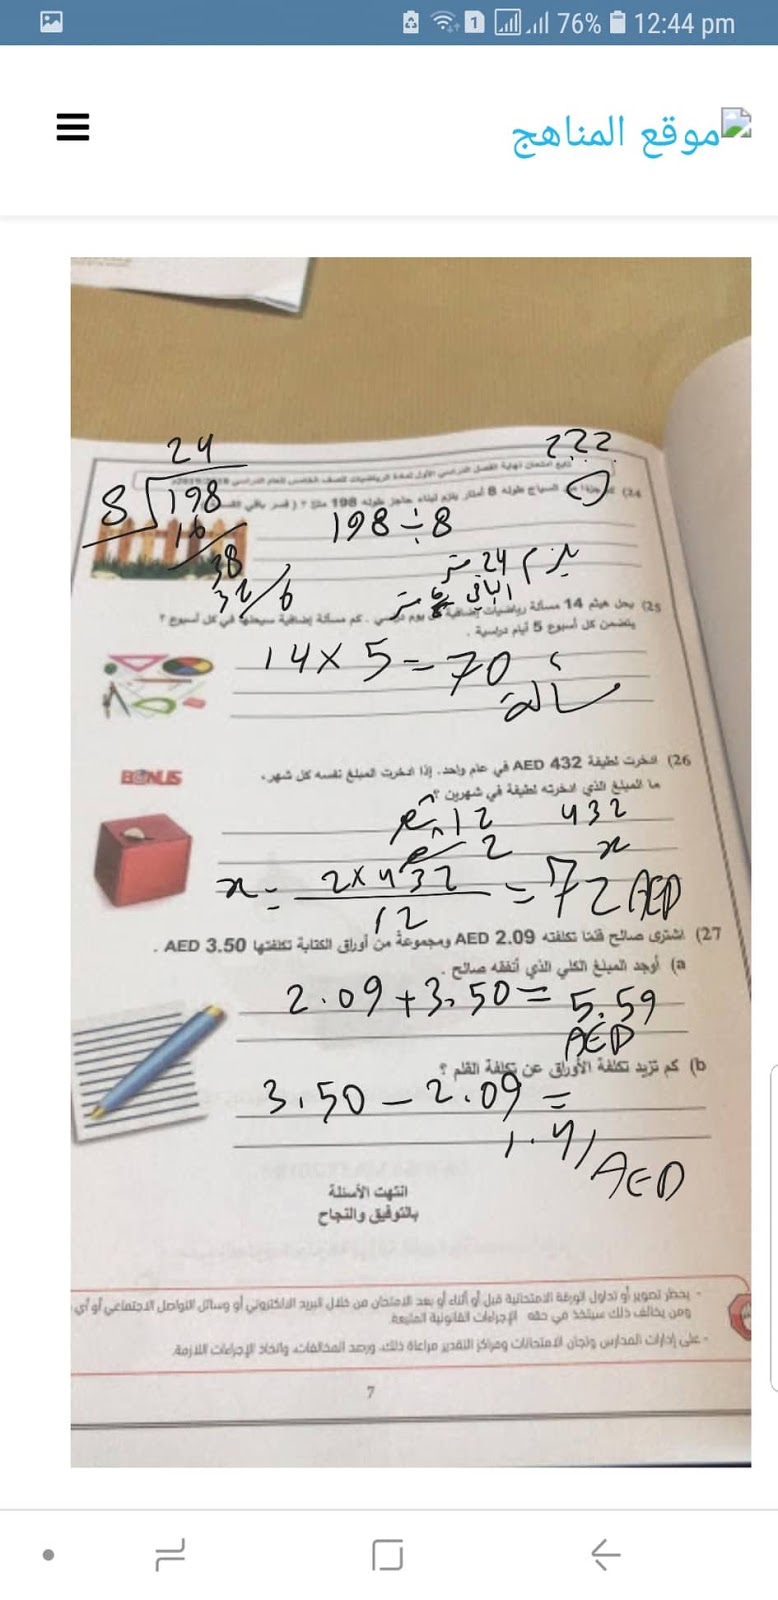 76% 12:44 pm
موقع المناهج
24
222
تابع امتحان نهاية الفصل الدراسي الأول لمادة الرياضيات للصف الخامس للعام الدراسي
24) السياج طوله 8 أمتار يلزم لبناء حاجز طوله 198 متر ؟ ( فسر باقي
8 198
198 ÷ 8
16
38
32/6
يلزم 24 متر
الباقي 6 متر
25) يحل هيثم 14 مسألة رياضيات إضافية كل يوم دراسي . كم مسألة إضافية سيحلها في كل أسبوع ؟
يتضمن كل أسبوع 5 أيام دراسية .
14 x 5 = 70
مسألة
BONUS
26) ادخرت لطيفة AED 432 في عام واحد. إذا ادخرت المبلغ نفسه كل شهر،
ما المبلغ الذي ادخرته لطيفة في شهرين ؟
12 432
2 x
x = 2 x 432 / 12 = 72 AED
27) اشترى صالح قلمًا تكلفته AED 2.09 ومجموعة من أوراق الكتابة تكلفتها AED 3.50 .
a) أوجد المبلغ الكلي الذي أنفقه صالح .
2.09 + 3.50 = 5.59
AED
b) كم تزيد تكلفة الأوراق عن تكلفة القلم ؟
3.50 - 2.09 =
1.41 AED
انتهت الأسئلة
بالتوفيق والنجاح
- يحظر تصوير أو تداول الورقة الامتحانية قبل أو أثناء أو بعد الامتحان من خلال البريد الالكتروني أو وسائل التواصل الاجتماعي أو أي
ومن يخالف ذلك سيتخذ في حقه الإجراءات القانونية المتبعة.
- على إدارات المدارس ولجان الامتحانات ومراكز التقدير مراعاة ذلك، ورصد المخالفات، واتخاذ الإجراءات اللازمة.
7